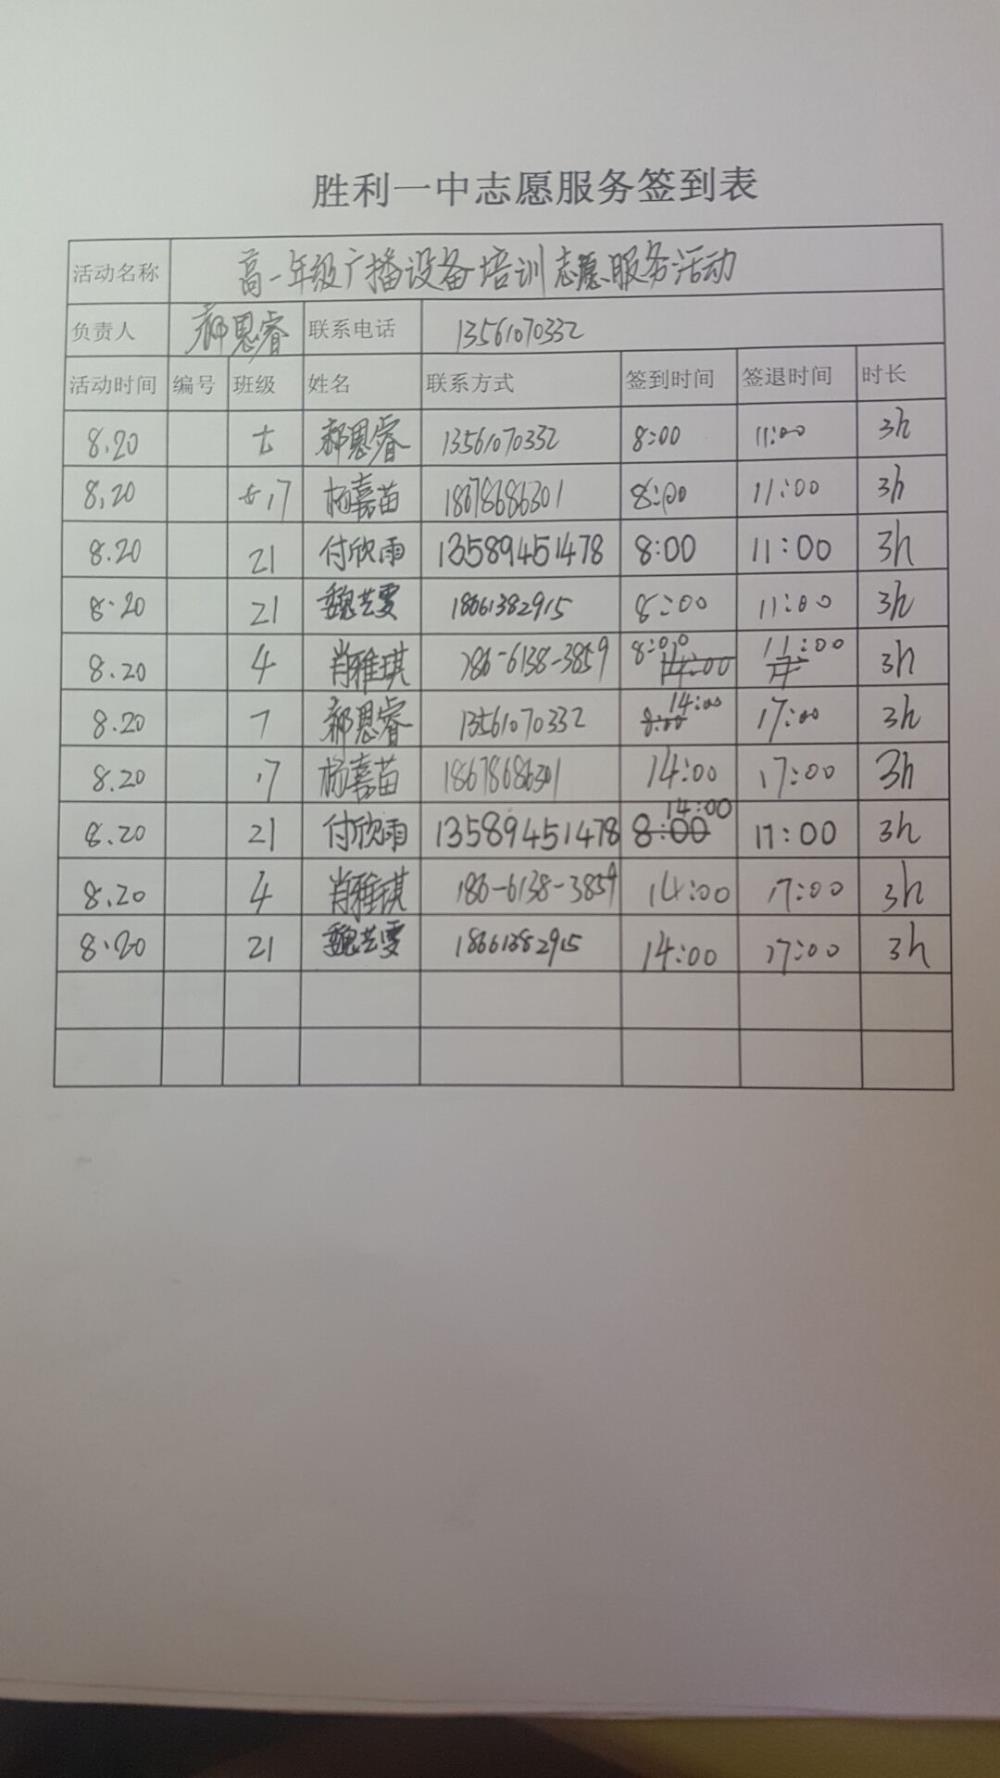 胜利一中志愿服务签到表
活动名称 高一年级广播设备培训志愿服务活动
负责人 郝恩睿 联系电话 13561070332
活动时间 编号 班级 姓名 联系方式 签到时间 签退时间 时长
8.20 七 郝恩睿 13561070332 8:00 11:00 3h
8.20 17 杨嘉苗 18678686301 8:00 11:00 3h
8.20 21 付欣雨 13589451478 8:00 11:00 3h
8.20 21 魏芸雯 18661382915 8:00 11:00 3h
8.20 4 肖雅琪 186-6138-3859 8:00 11:00 3h
8.20 7 郝恩睿 13561070332 14:00 17:00 3h
8.20 17 杨嘉苗 18678686301 14:00 17:00 3h
8.20 21 付欣雨 13589451478 14:00 17:00 3h
8.20 4 肖雅琪 186-6138-3859 14:00 17:00 3h
8.20 21 魏芸雯 18661382915 14:00 17:00 3h